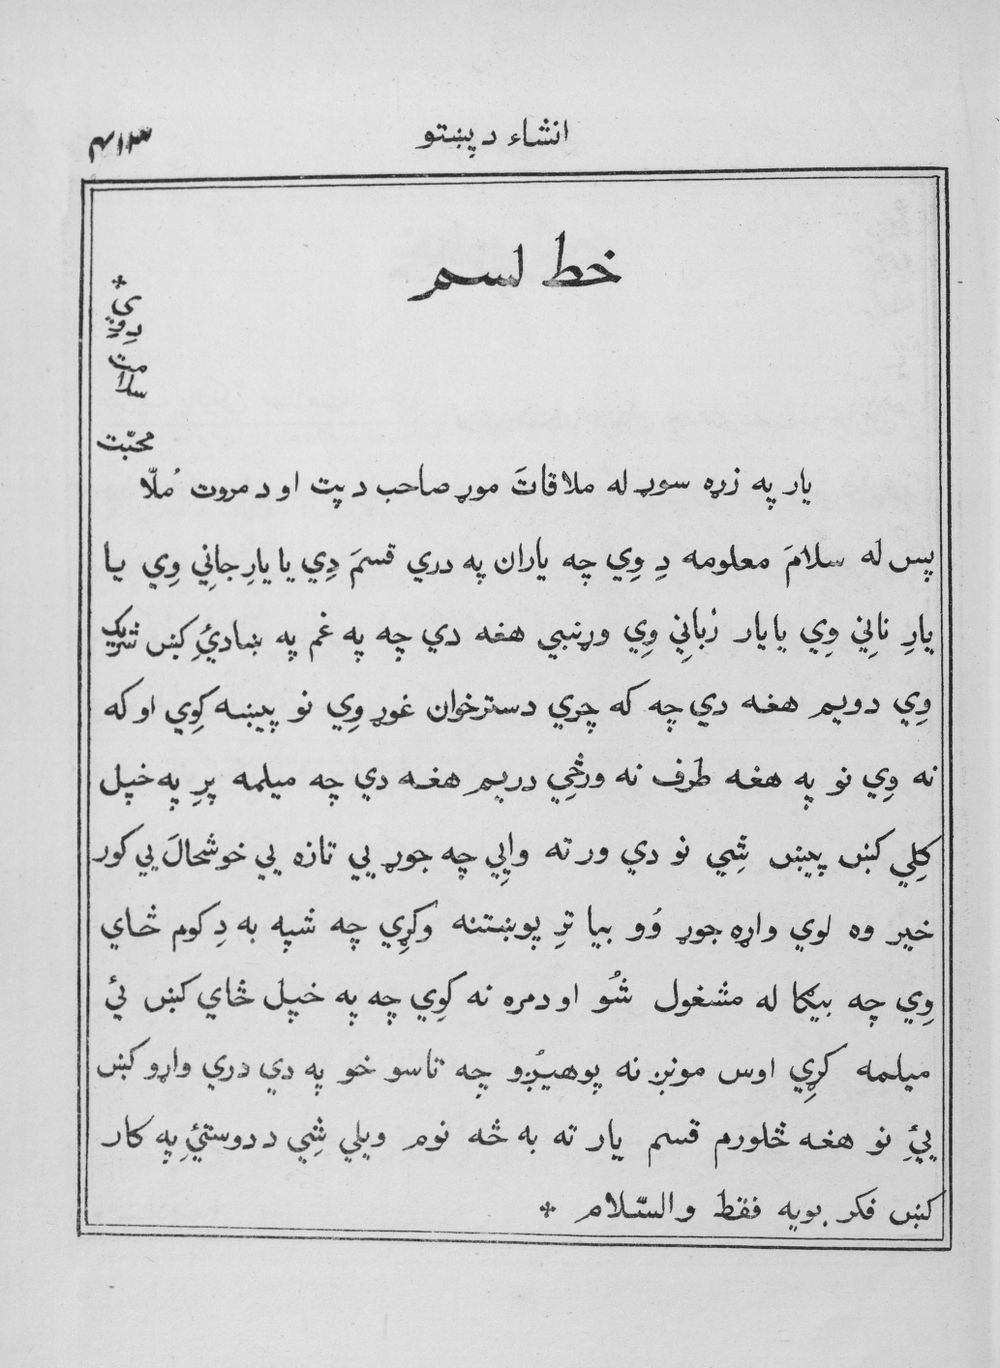 انشاء د پښتو
خط لسم
یار په زړه سوړ له ملاقاتَ موړ صاحب د پت او د مروت مُلّا
محبّت
سلامت
دِ وِي
پس له سلامَ معلومه دِ وِي چه یاران په دري قسمَ دِي یا یارِ جانِي وِي یا
یارِ نانِي وِي یا یار زبانِي وِي وړنبي هغه دي چه په غم په ښادیٔ کښ شریک
وِي دویم هغه دي چه که چري دسترخوان غوړ وِي نو پیښه کوِي او که
نه وِي نو په هغه طرف نه ورځِي دریم هغه دي چه میلمه پرِ په خپل
کلِي کښ پیښ شِي نو دي ورته وایِي چه جوړ یي تازه یي خوشحالَ یي کور
خیر وه لوي واړه جوړ وُو بیا ترِ پوښتنه وکړِي چه شپه به دِ کوم ځاي
وِي چه بیګا له مشغول شُو او دمره نه کوِي چه په خپل ځاي کښ ییٔ
میلمه کړِي اوس مونږ نه پوهیږُو چه تاسو خو په دي دري واړو کښ
ییٔ نو هغه څلورم قسم یار ته به څه نوم ویلي شِي د دوستیٔ په کار
کښ فکر بویه فقط والسّلام